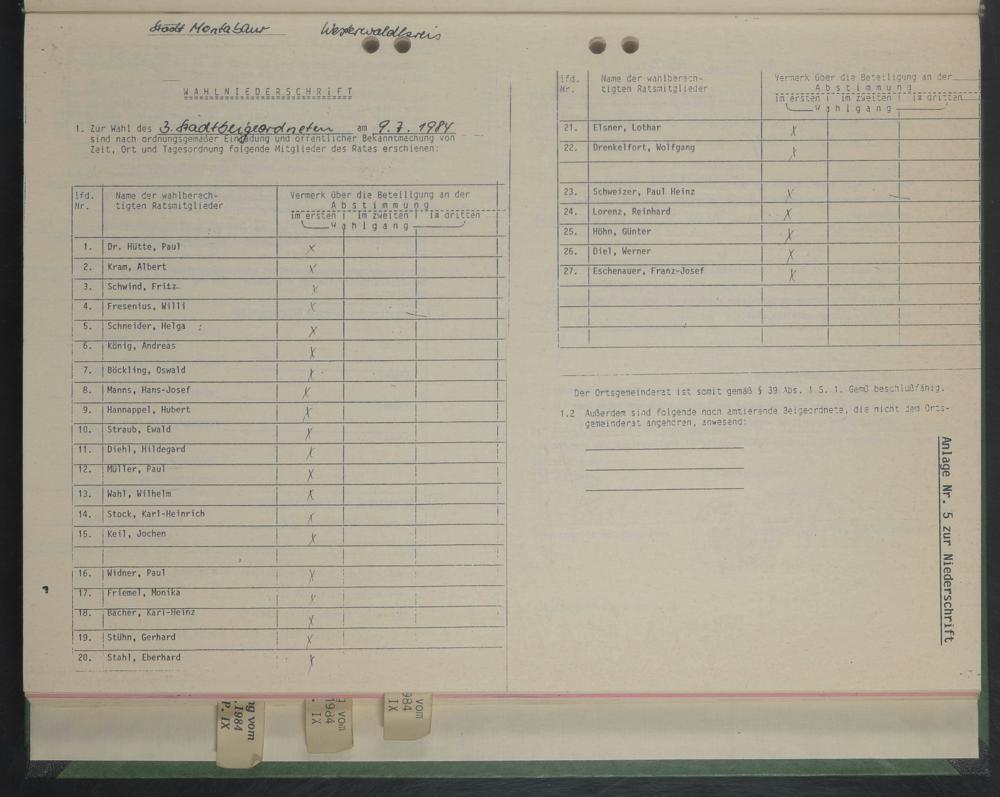 Stadt Montabaur Westerwaldkreis
WAHLNIEDERSCHRIFT
1. Zur Wahl des 3. Stadtbeigeordneten am 9.7.1984
sind nach ordnungsgemäßer Einladung und öffentlicher Bekanntmachung von
Zeit, Ort und Tagesordnung folgende Mitglieder des Rates erschienen:
lfd. Nr. Name der wahlberech-tigten Ratsmitglieder Vermerk über die Beteiligung an der
Abstimmung
im ersten im zweiten im dritten
Wahlgang
1. Dr. Hütte, Paul x
2. Kram, Albert x
3. Schwind, Fritz x
4. Fresenius, Willi x
5. Schneider, Helga x
6. König, Andreas x
7. Böckling, Oswald x
8. Manns, Hans-Josef x
9. Hannappel, Hubert x
10. Straub, Ewald x
11. Diehl, Hildegard x
12. Müller, Paul x
13. Wahl, Wilhelm x
14. Stock, Karl-Heinrich x
15. Keil, Jochen x
16. Widner, Paul x
17. Friemel, Monika x
18. Bächer, Karl-Heinz x
19. Stühn, Gerhard x
20. Stahl, Eberhard x
lfd. Nr. Name der wahlberech-tigten Ratsmitglieder Vermerk über die Beteiligung an der
Abstimmung
im ersten im zweiten im dritten
Wahlgang
21. Elsner, Lothar x
22. Drenkelfort, Wolfgang x
23. Schweizer, Paul Heinz x
24. Lorenz, Reinhard x
25. Höhn, Günter x
26. Diel, Werner x
27. Eschenauer, Franz-Josef x
Der Ortsgemeinderat ist somit gemäß § 39 Abs. 1 S. 1. GemO beschlußfähig.
1.2 Außerdem sind folgende noch amtierende Beigeordnete, die nicht dem Orts-
gemeinderat angehören, anwesend:
Anlage Nr. 5 zur Niederschrift
vom
.1984
P. IX
vom
1984
. IX
vom
984
IX